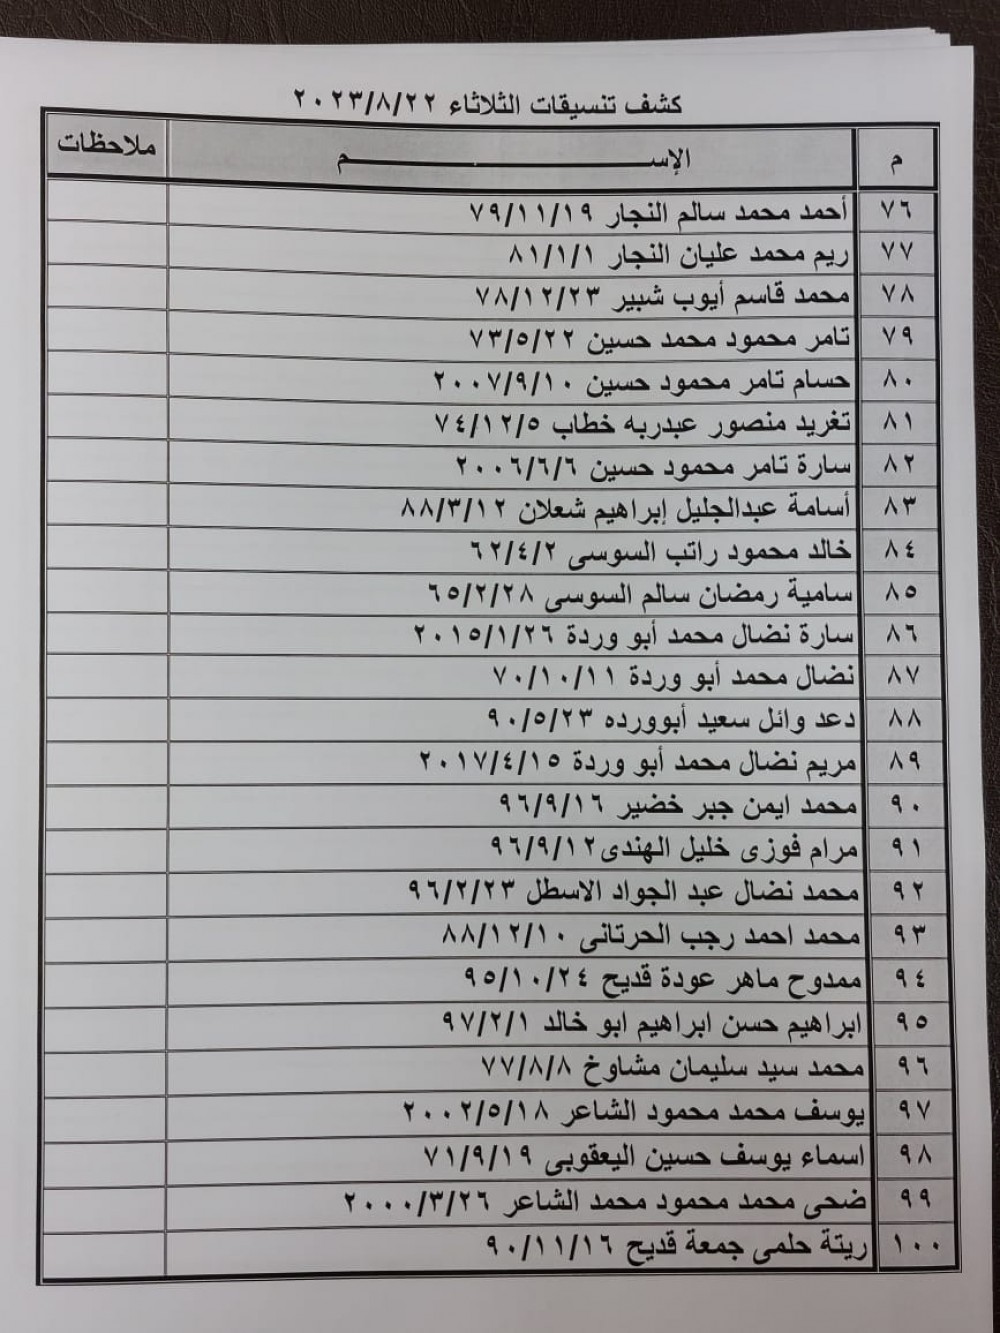 كشف تنسيقات الثلاثاء ٢٠٢٣/٨/٢٢
م الإســـــــــم ملاحظات
٧٦ أحمد محمد سالم النجار ٧٩/١١/١٩
٧٧ ريم محمد عليان النجار ٨١/١/١
٧٨ محمد قاسم أيوب شبير ٧٨/١٢/٢٣
٧٩ تامر محمود محمد حسين ٧٣/٥/٢٢
٨٠ حسام تامر محمود حسين ٢٠٠٧/٩/١٠
٨١ تغريد منصور عبدربه خطاب ٧٤/١٢/٥
٨٢ سارة تامر محمود حسين ٢٠٠٦/٦/٦
٨٣ أسامة عبدالجليل إبراهيم شعلان ٨٨/٣/١٢
٨٤ خالد محمود راتب السوسى ٦٢/٤/٢
٨٥ سامية رمضان سالم السوسى ٦٥/٢/٢٨
٨٦ سارة نضال محمد أبو وردة ٢٠١٥/١/٢٦
٨٧ نضال محمد أبو وردة ٧٠/١٠/١١
٨٨ دعد وائل سعيد أبوورده ٩٠/٥/٢٣
٨٩ مريم نضال محمد أبو وردة ٢٠١٧/٤/١٥
٩٠ محمد ايمن جبر خضير ٩٦/٩/١٦
٩١ مرام فوزى خليل الهندى٩٦/٩/١٢
٩٢ محمد نضال عبد الجواد الاسطل ٩٦/٢/٢٣
٩٣ محمد احمد رجب الحرتانى ٨٨/١٢/١٠
٩٤ ممدوح ماهر عودة قديح ٩٥/١٠/٢٤
٩٥ ابراهيم حسن ابراهيم ابو خالد ٩٧/٢/١
٩٦ محمد سيد سليمان مشاوخ ٧٧/٨/٨
٩٧ يوسف محمد محمود الشاعر ٢٠٠٢/٥/١٨
٩٨ اسماء يوسف حسين اليعقوبى ٧١/٩/١٩
٩٩ ضحى محمد محمود محمد الشاعر ٢٠٠٠/٣/٢٦
١٠٠ ريتة حلمى جمعة قديح ٩٠/١١/١٦